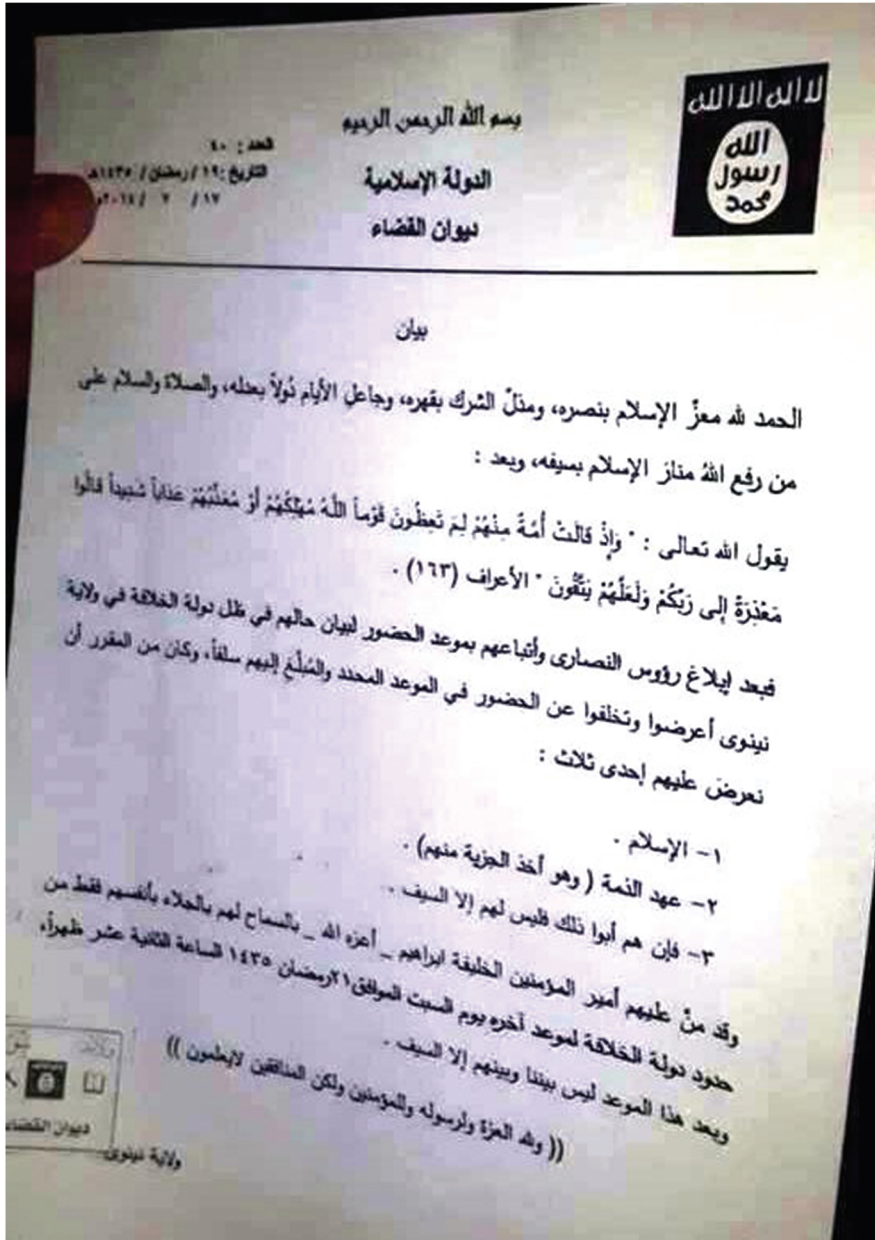 لا اله الا الله
الله
رسول
محمد
بسم الله الرحمن الرحيم
الدولة الإسلامية
ديوان القضاء
العدد : ٤٠
التاريخ : ١٩ / رمضان / ١٤٣٥هـ
١٧ / ٧ / ٢٠١٤م
بيان
الحمد لله معزّ الإسلام بنصره، ومذلّ الشرك بقهره، وجاعل الأيام دُولاً بعدله، والصلاة والسلام على
من رفع اللهُ منارَ الإسلام بسيفه، وبعد :
يقول الله تعالى : " وَإِذْ قَالَتْ أُمَّةٌ مِنْهُمْ لِمَ تَعِظُونَ قَوْماً اللَّهُ مُهْلِكُهُمْ أَوْ مُعَذِّبُهُمْ عَذَاباً شَدِيداً قَالُوا
مَعْذِرَةً إِلى رَبِّكُمْ وَلَعَلَّهُمْ يَتَّقُونَ " الأعراف (١٦٣) .
فبعد إبلاغ رؤوس النصارى وأتباعهم بموعد الحضور لبيان حالهم في ظل دولة الخلافة في ولاية
نينوى أعرضوا وتخلفوا عن الحضور في الموعد المحدد والمُبلّغ إليهم سلفاً، وكان من المقرر أن
نعرضَ عليهم إحدى ثلاث :
١- الإسلام .
٢- عهد الذمة ( وهو أخذ الجزية منهم) .
٣- فإن هم أبوا ذلك فليس لهم إلا السيف .
وقد منّ عليهم أمير المؤمنين الخليفة ابراهيم _ أعزه الله _ بالسماح لهم بالجلاء بأنفسهم فقط من
حدود دولة الخلافة لموعد آخره يوم السبت الموافق٢١رمضان ١٤٣٥ الساعة الثانية عشر ظهراً،
وبعد هذا الموعد ليس بيننا وبينهم إلا السيف .
(( ولله العزة ولرسوله وللمؤمنين ولكن المنافقين لايعلمون ))
ديوان القضاء
ولاية نينوى